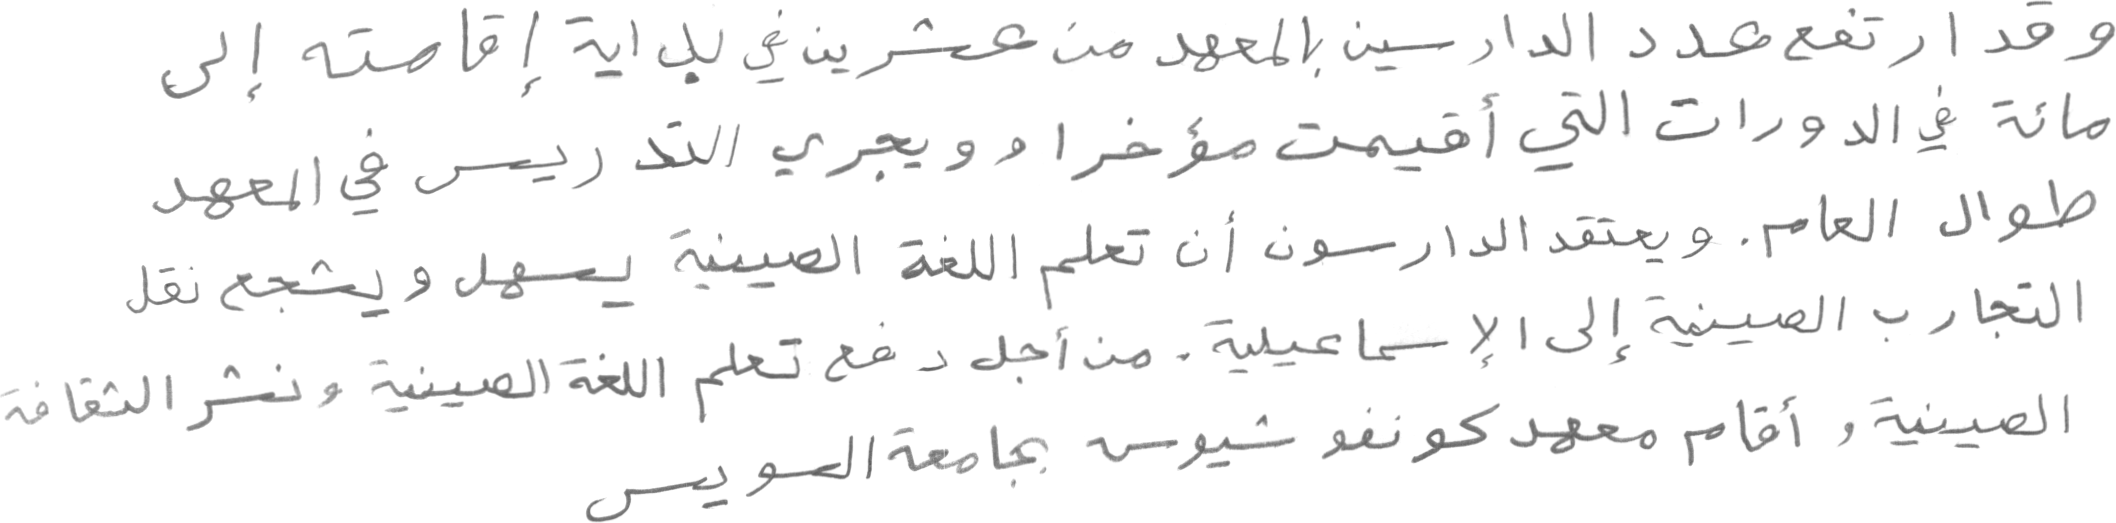 وقد ارتفع عدد الدارسين بالمعهد من عشرين في بداية إقامته إلى
مائة في الدورات التي أقيمت مؤخرا، ويجري التدريس في المعهد
طوال العام. ويعتقد الدارسون أن تعلم اللغة الصينية يسهل ويشجع نقل
التجارب الصينية إلى الإسماعيلية. من أجل دفع تعلم اللغة الصينية ونشر الثقافة
الصينية، أقام معهد كونفوشيوس بجامعة السويس